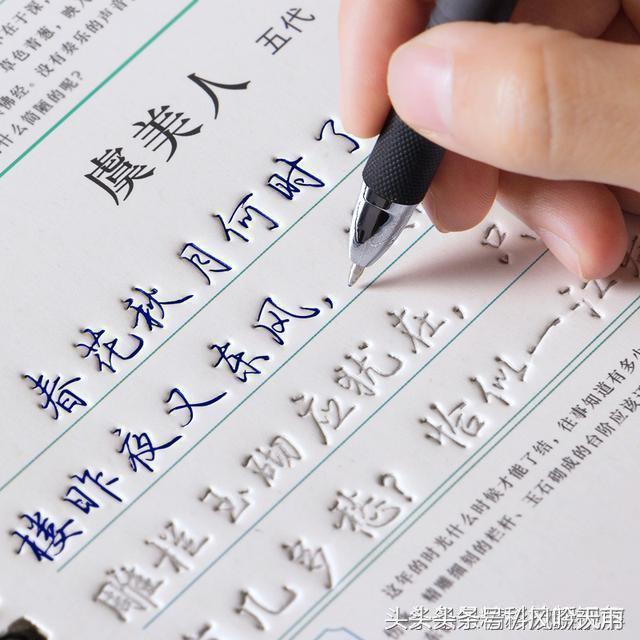 在于深
草色青葱，映入
佛经。没有奏乐的声音
什么简陋的呢？
虞美人 五代
春花秋月何时了
楼昨夜又东风，
雕栏玉砌应犹在，
几多愁？恰似一江
这年的时光什么时候才能了结，往事知道有多少
精雕细刻的栏杆、玉石砌成的台阶应该